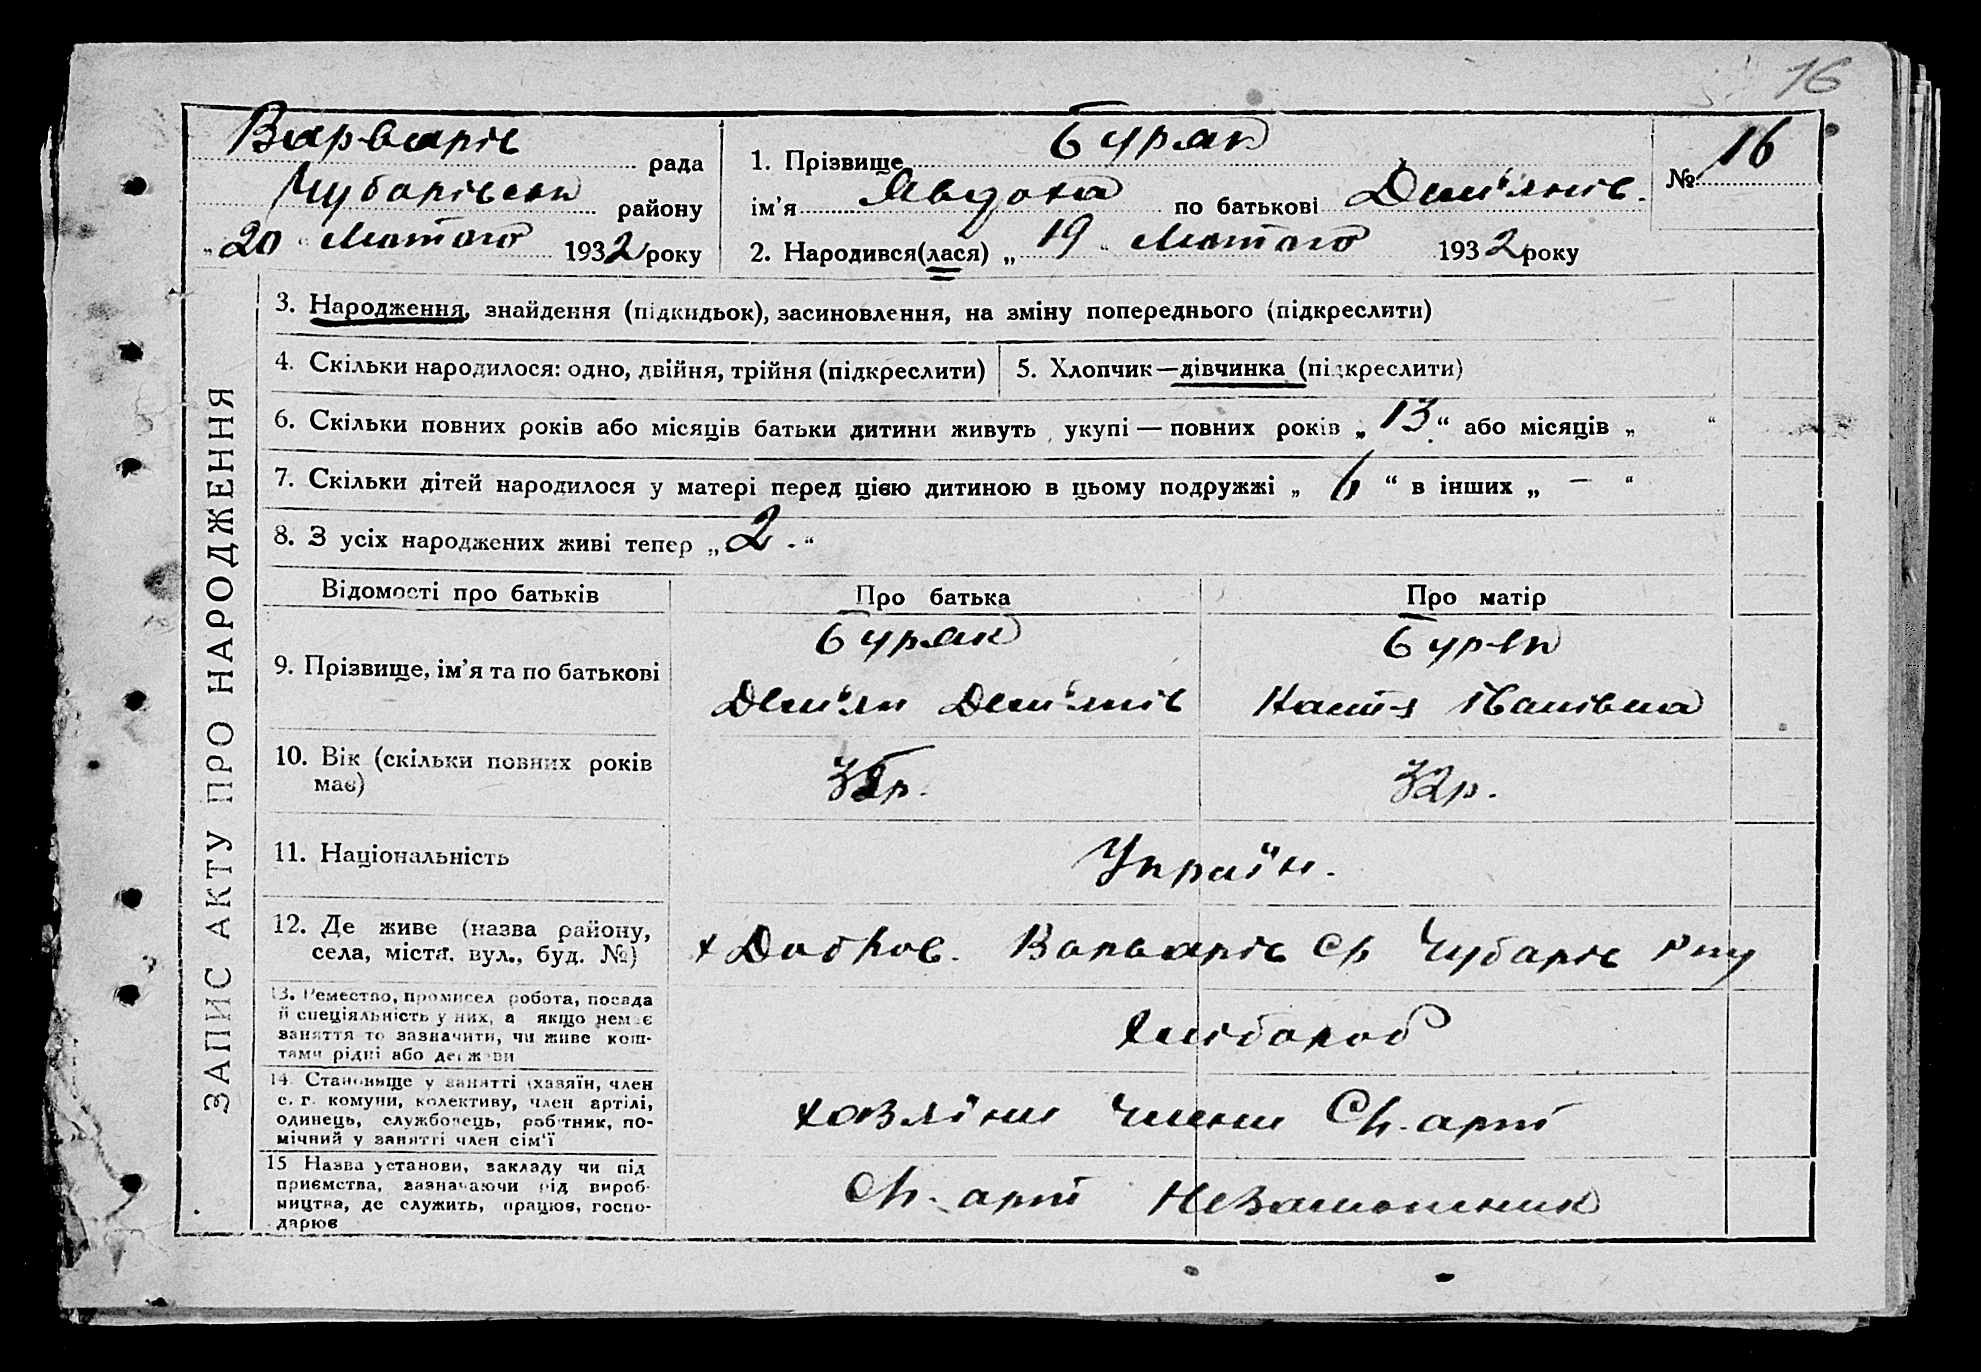 16
Варварів рада
Чубарівськ району
„20“ Лютого 1932 року
1. Прізвище Буряк
ім’я Явдоха по батькові Дем'янів.
№ 16
2. Народився(лася) „19“ Лютого 1932 року
ЗАПИС АКТУ ПРО НАРОДЖЕННЯ
3. Народження, знайдення (підкидьок), засиновлення, на зміну попереднього (підкреслити)
4. Скільки народилося: одно, двійня, трійня (підкреслити)
5. Хлопчик — дівчинка (підкреслити)
6. Скільки повних років або місяців батьки дитини живуть укупі — повних років „13“ або місяців „ “
7. Скільки дітей народилося у матері перед цією дитиною в цьому подружжі „6“ в інших „—“
8. З усіх народжених живі тепер „2.“
Відомості про батьків
Про батька
Про матір
9. Прізвище, ім’я та по батькові
Буряк
Дем'ян Дем'янів
Буряк
Настя Іванівна
10. Вік (скільки повних років
має)
р.
32р.
11. Національність
Україн.
12. Де живе (назва району,
села, міста, вул., буд. №)
х Добров. Варварів ср Чубарів р-ну
13. Ремество, промисел робота, посада
й спеціяльність у них, а якщо немає
заняття то зазначити, чи живе кош-
тами рідні або держави
Хлібороб
14. Становище у занятті (хазяїн, член
с. г. комуни, колективу, член артілі,
одинець, службовець, робітник, по-
мічний у занятті член сім'ї
хазяїни члени Ск. арт
15 Назва установи, закладу чи під
приємства, зазначаючи рід вироб-
ництва, де служить, працює, госпо-
дарює
арт Незаможник